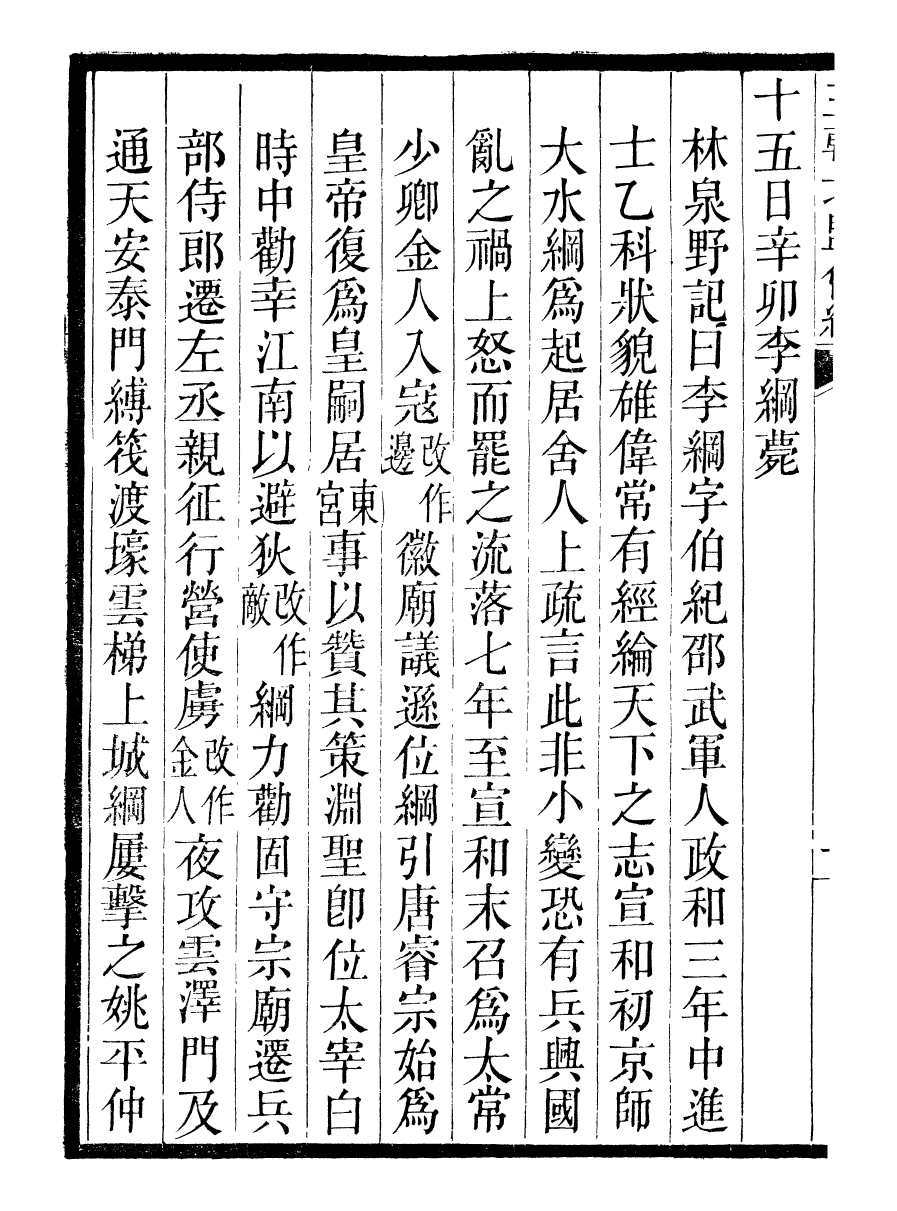 十五日辛卯李綱薨
林泉野記曰李綱字伯紀邵武軍人政和三年中進
士乙科狀貌雄偉常有經綸天下之志宣和初京師
大水綱爲起居舍人上疏言此非小變恐有兵興國
亂之禍上怒而罷之流落七年至宣和末召爲太常
少卿金人入寇改作邊徽廟議遜位綱引唐睿宗始爲
皇帝復爲皇嗣居東宮事以贊其策淵聖卽位太宰白
時中勸幸江南以避狄改作敵綱力勸固守宗廟遷兵
部侍郎遷左丞親征行營使虜改作金人夜攻雲澤門及
通天安泰門縛筏渡壕雲梯上城綱屢擊之姚平仲